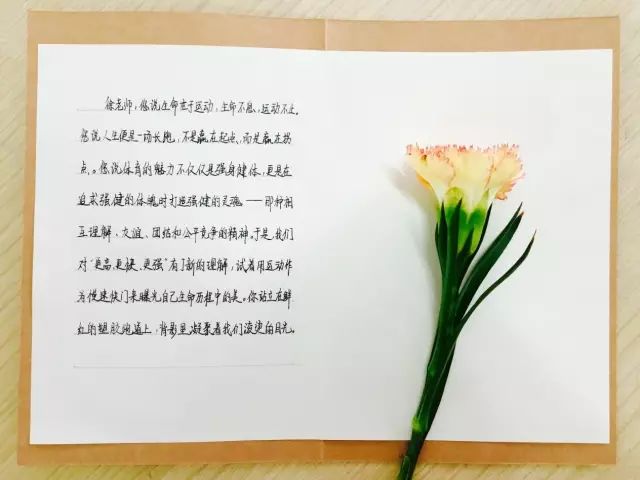 徐老师，您说生命在于运动，生命不息，运动不止。
您说人生便是一场长跑，不是赢在起点，而是赢在拐
点。您说体育的魅力不仅仅是强身健体，更是在
追求强健的体魄时打造强健的灵魂——即种相
互理解、友谊、团结和公平竞争的精神。于是，我们
对“更高、更快、更强”有了新的理解，试着用运动作
为慢速快门来曝光自己生命历程中的美。你站立在鲜
红的塑胶跑道上，背影里凝聚着我们滚烫的目光。